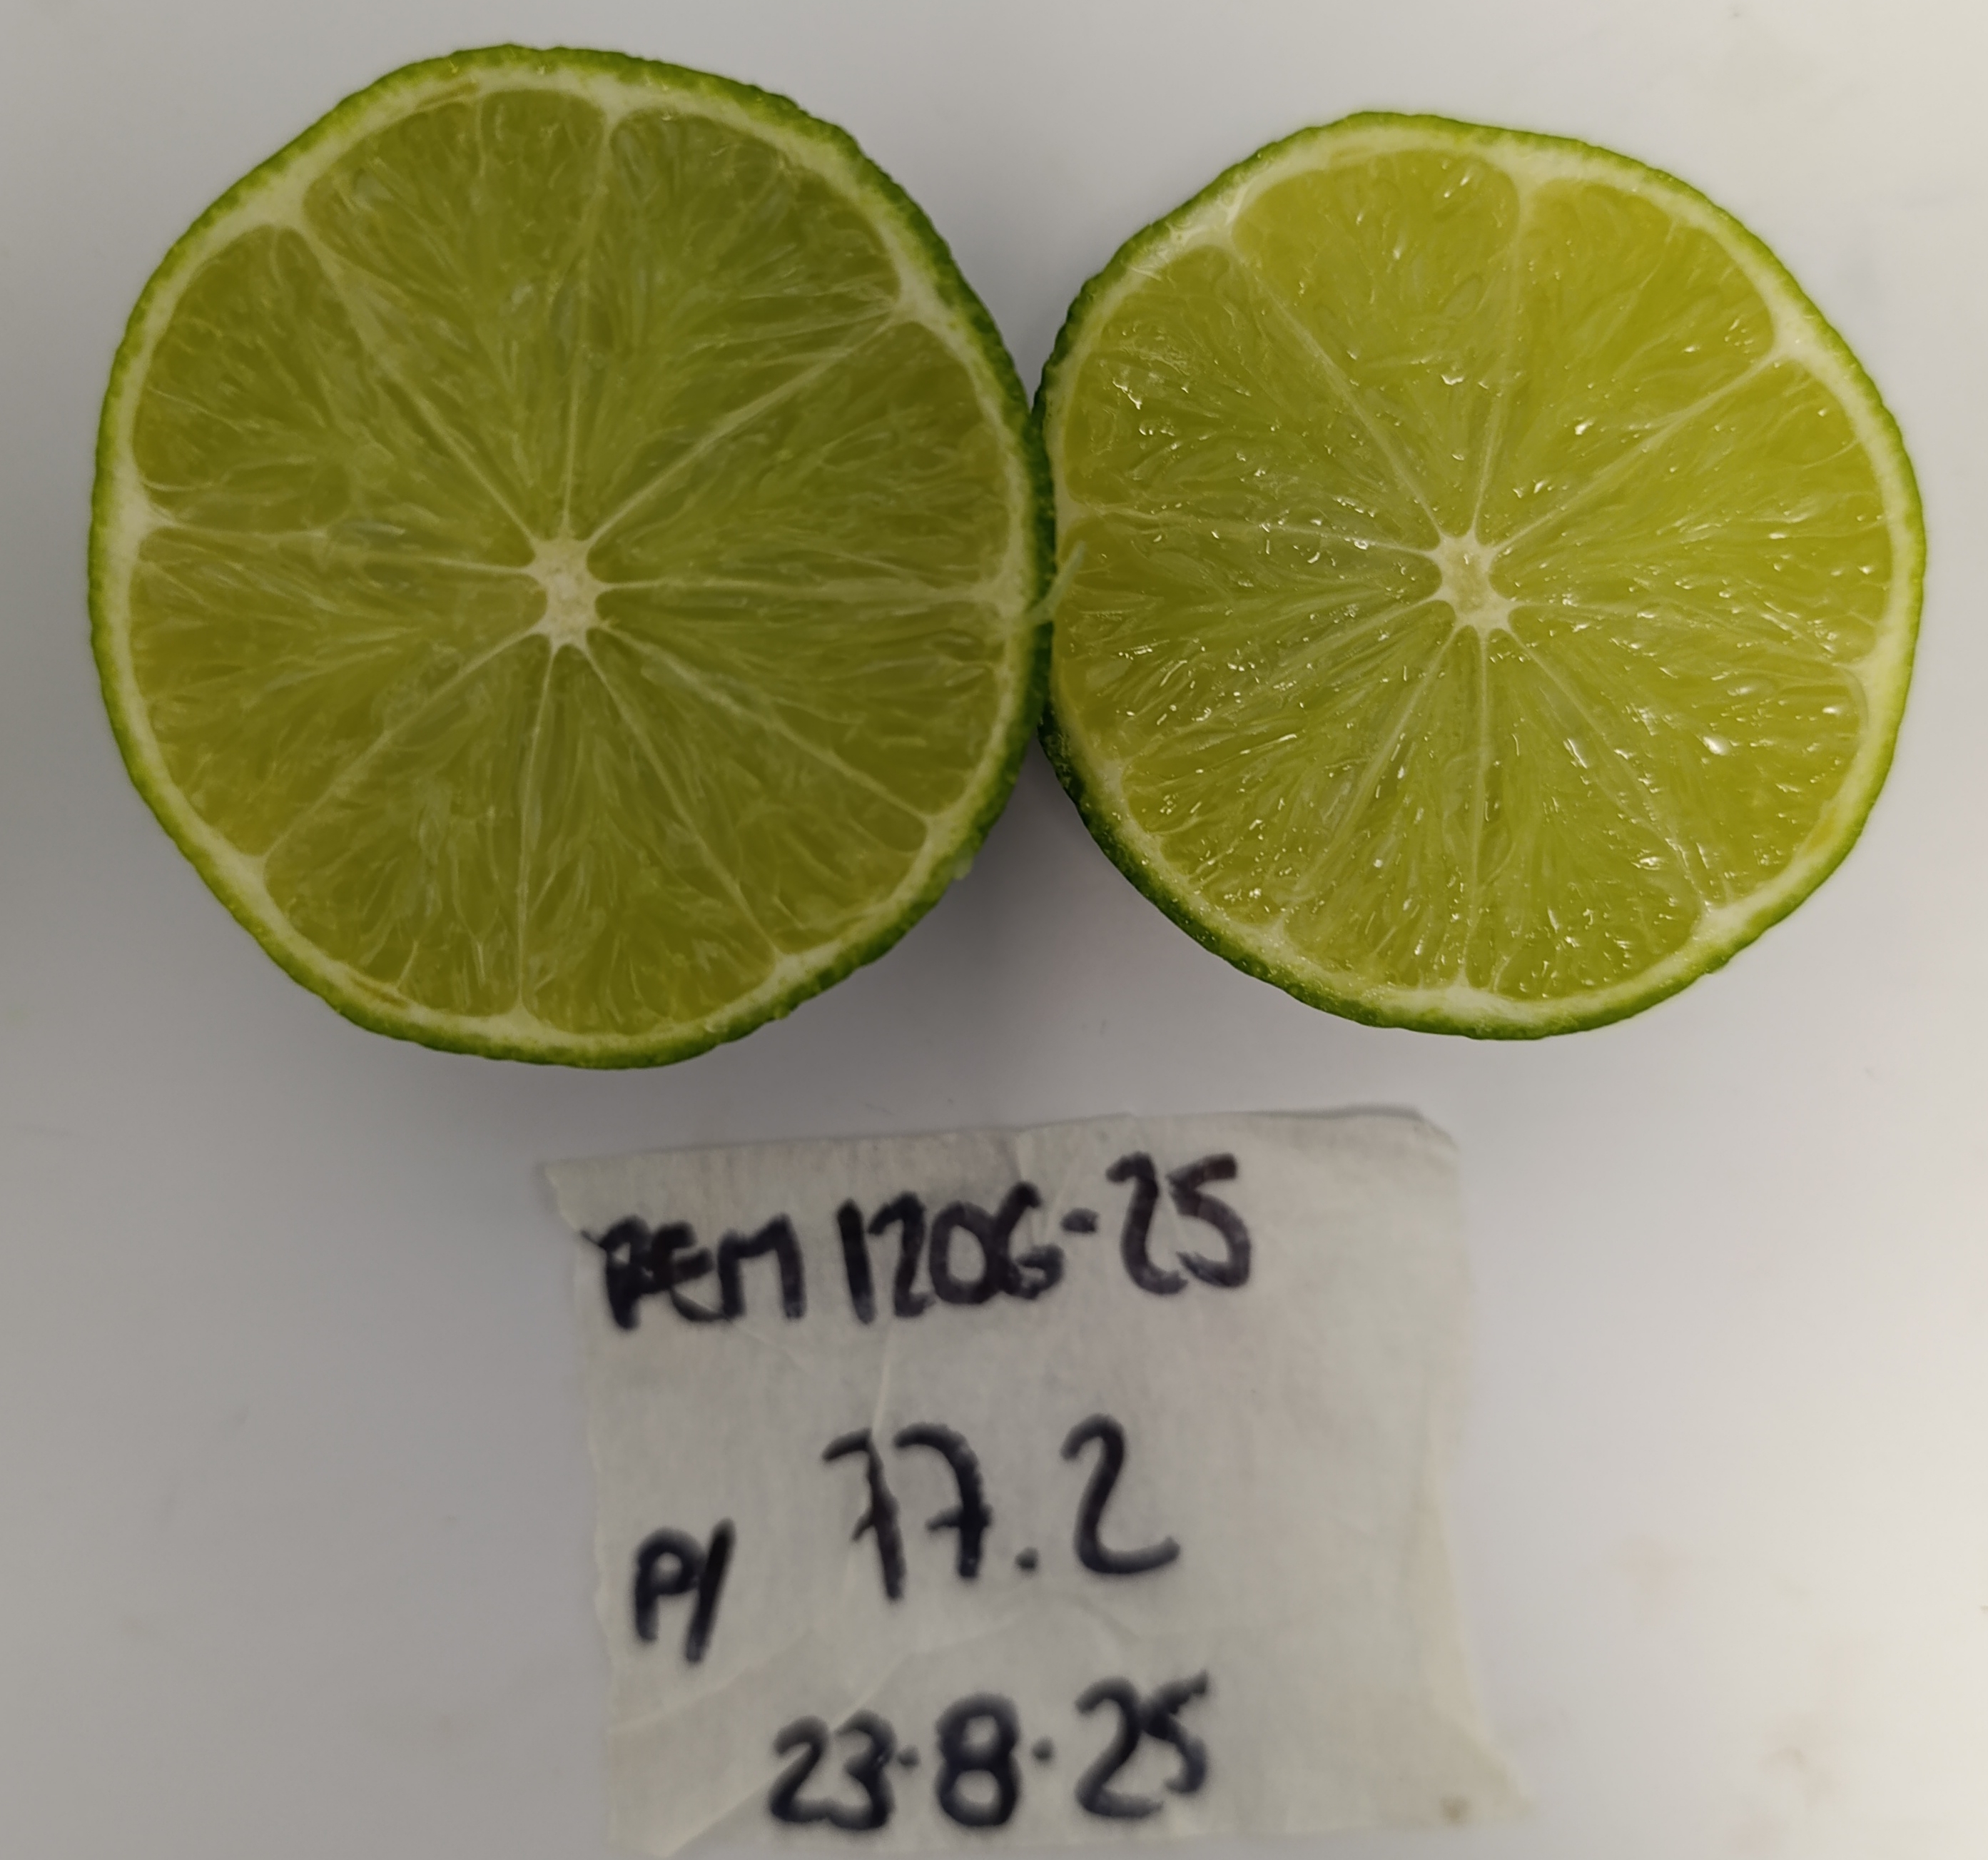 REM 1206-25
77.2
P/
23.8.25